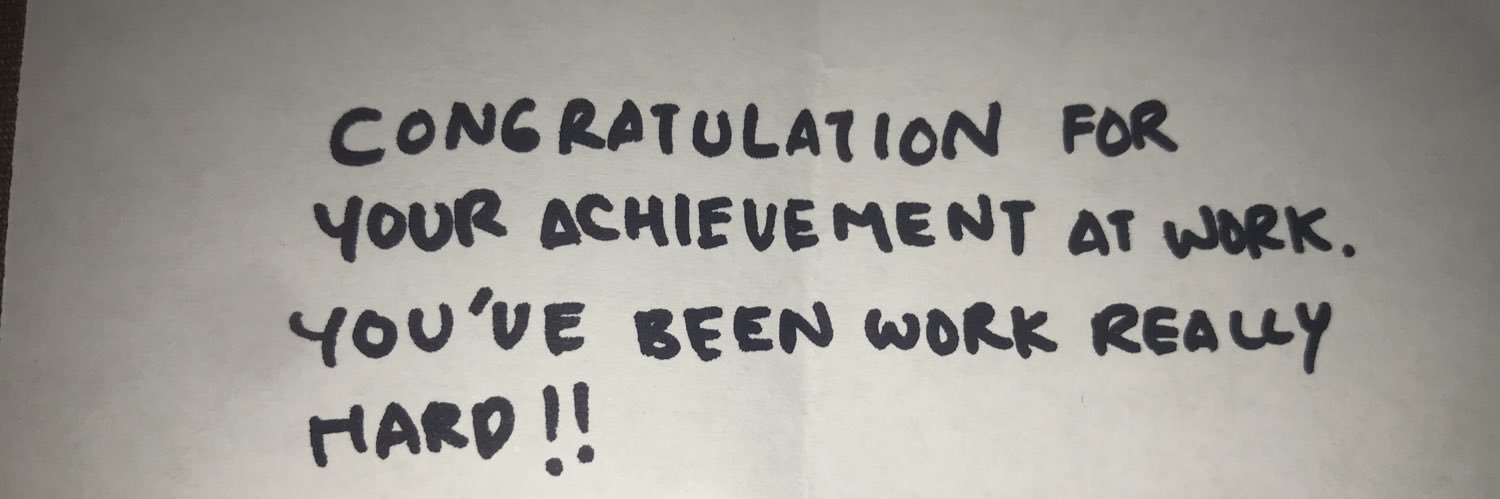 CONGRATULATION FOR
YOUR ACHIEVEMENT AT WORK.
YOU'VE BEEN WORK REALLY
HARD!!